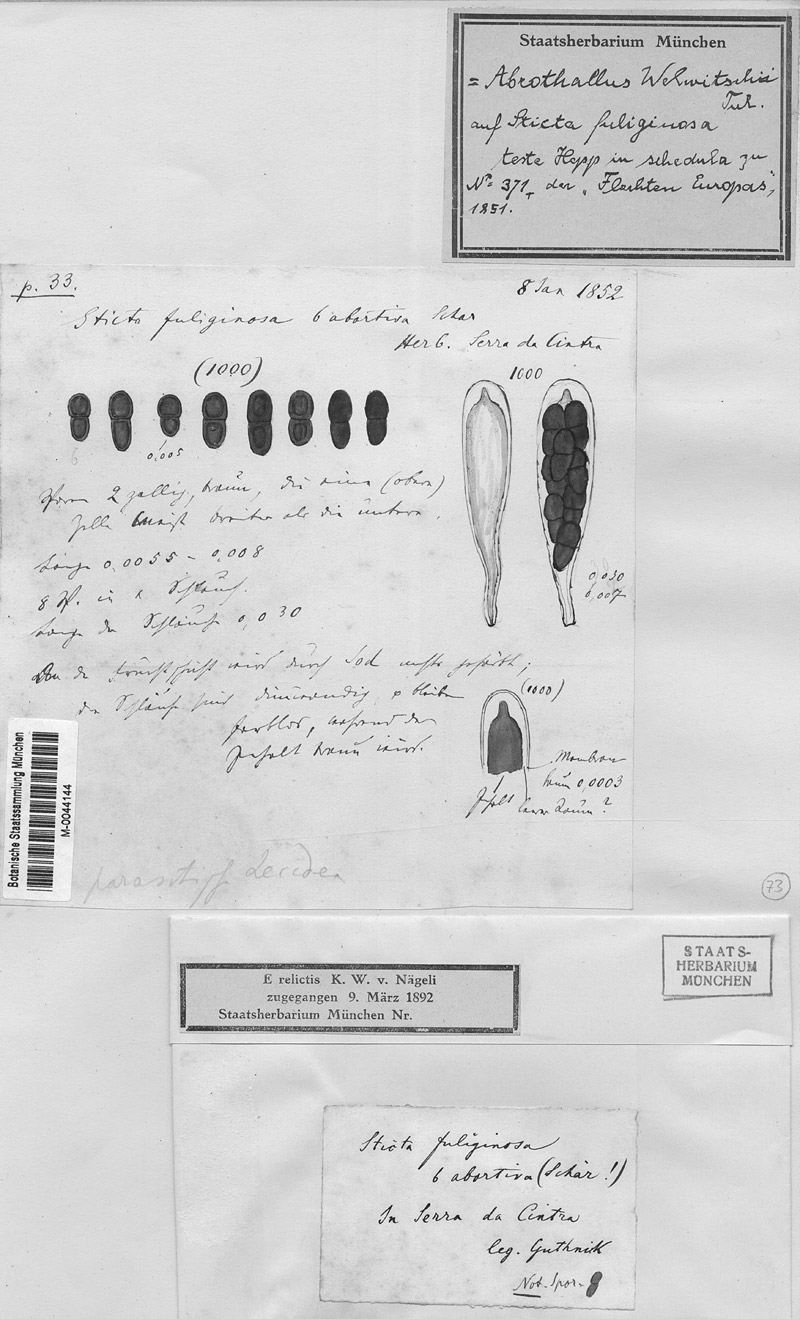 Staatsherbarium München
= Abrothallus Welwitschii
Tul.
auf Sticta fuliginosa
teste Hepp in schedula zu
No. 371, der „Flechten Europas",
1851.
p. 33.
8 Jan 1852
Sticta fuliginosa b abortiva Schär
Herb. Serra da Cintra
(1000)
1000
6
0,005
Sporen 2 zellig, braun, die eine (obere)
Zelle meist breiter als die untere.
Länge 0,0055 - 0,008
8 Sp. in 1 Schlauch.
Länge der Schläuche 0,030
0,030
0,007
die Fruchtschicht wird durch Iod nicht gefärbt;
die Schläuche sind dünnwandig, bleiben
farblos, während der
Inhalt braun wird.
(1000)
Membran
kaum 0,0003
Inhalt
leerer Raum?
Botanische Staatssammlung München
M-0044144
parasitisch Lecidea
73
E relictis K. W. v. Nägeli
zugegangen 9. März 1892
Staatsherbarium München Nr.
STAATS-
HERBARIUM
MÜNCHEN
Sticta fuliginosa
b abortiva (Schär!)
In Serra da Cintra
leg. Guthnik
Not. Spor.